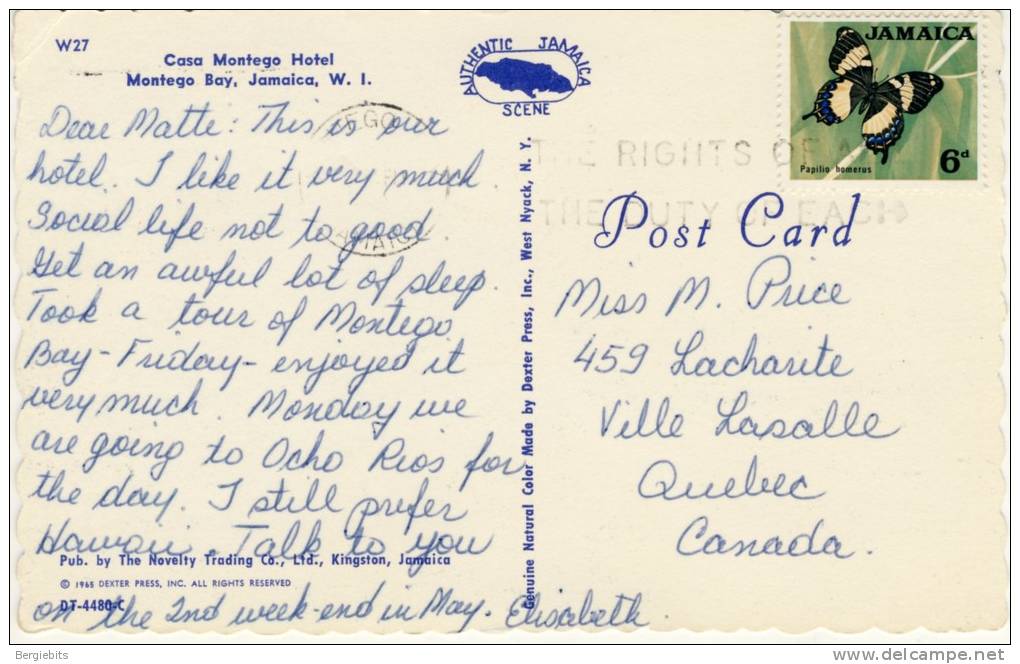 W27
Casa Montego Hotel
Montego Bay, Jamaica, W. I.
AUTHENTIC JAMAICA
SCENE
JAMAICA
Papilio homerus
6d
THE RIGHTS OF
THE DUTY OF EACH
Post Card
Dear Matte: This is our
hotel. I like it very much.
Social life not to good.
Get an awful lot of sleep.
Took a tour of Montego
Bay - Friday - enjoyed it
very much. Monday we
are going to Ocho Rios for
the day. I still prefer
Hawaii. Talk to you
on the 2nd week-end in May. Elisabeth.
Pub. by The Novelty Trading Co., Ltd., Kingston, Jamaica
© 1965 DEXTER PRESS, INC. ALL RIGHTS RESERVED
DT-4480-C
Genuine Natural Color Made by Dexter Press, Inc., West Nyack, N. Y.
Miss M. Price
459 Lacharite
Ville Lasalle
Quebec
Canada.
Bergiebits
www.delcampe.net